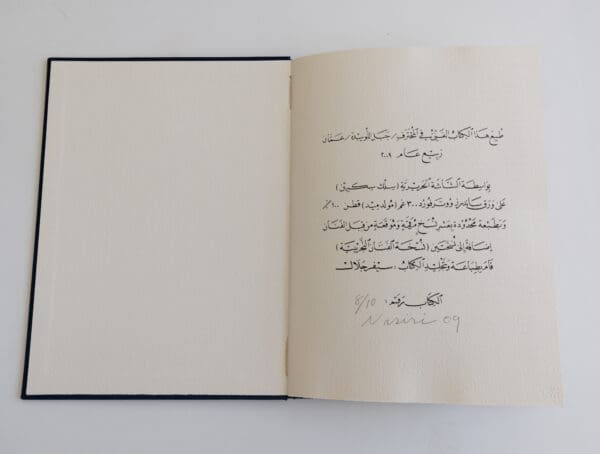 طبع هذا الكتاب الفني في المحترف / جبل اللويبدة / عمان
ربيع عام ٢٠٠٩
بواسطة الشاشة الحريرية (سلك سكرين)
على ورق ووترفورد ٣٠٠ غم (مولد ميد) قطن ١٠٠٪
وبطبعة محدودة بعشر نسخ مرقمة وموقعة من قبل الفنان
إضافة إلى نسختين (نسخة الفنان التجريبية)
قام بطباعة وتجليد الكتاب : سيفر جلال
الكتاب رقم : 8/10
Nasiri 09